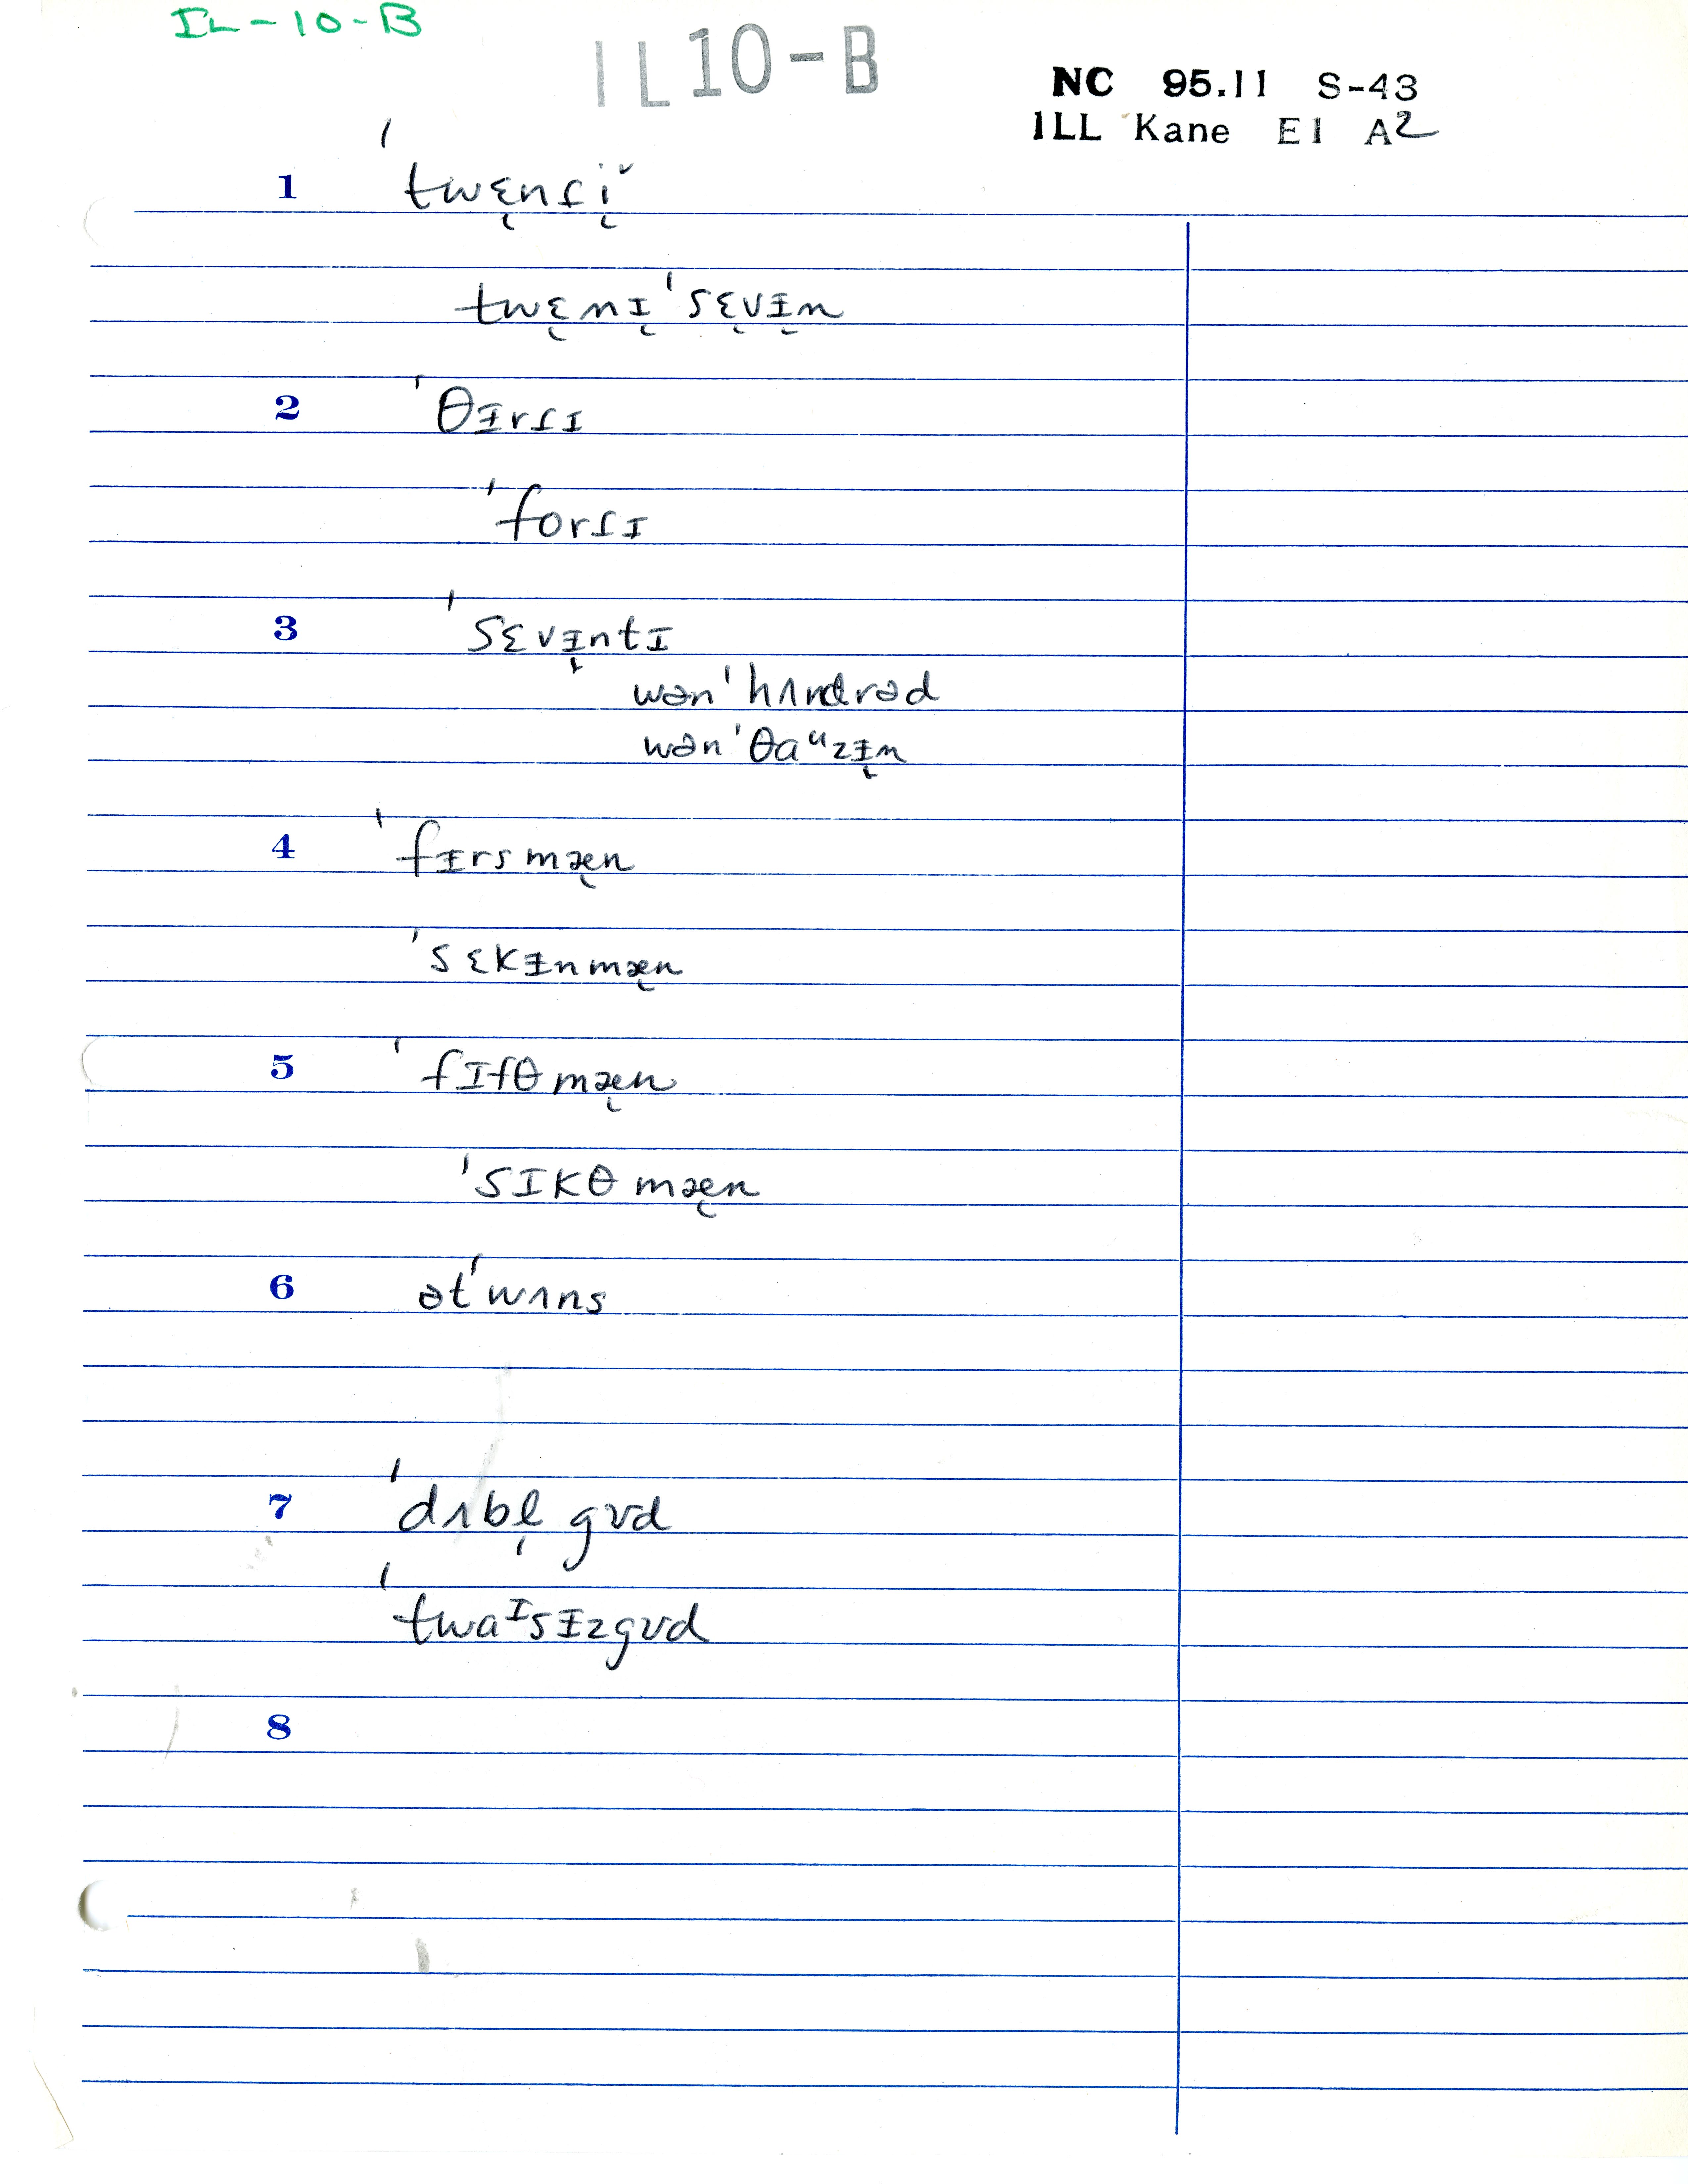 IL-10-B
IL10-B
NC 95.11 S-43
ILL Kane E1 A2
1 ˈtwɛ̨nɾį˅
twɛ̨nɪ̨ˈsɛ̨vᵻ̨n
2 ˈθᵻrɾɪ
ˈforɾɪ
3 ˈsɛvᵻ̨ntɪ
wənˈhʌndrəd
wənˈθaᶸzᵻ̨n
4 ˈfᵻrsmæ̨n
ˈsɛkᵻnmæ̨n
5 ˈfɪfθmæ̨n
ˈsɪkθmæ̨n
6 ətˈwʌns
7 ˈdʌbl̩ gᴜd
ˈtwaᶦsᵻzgᴜd
8